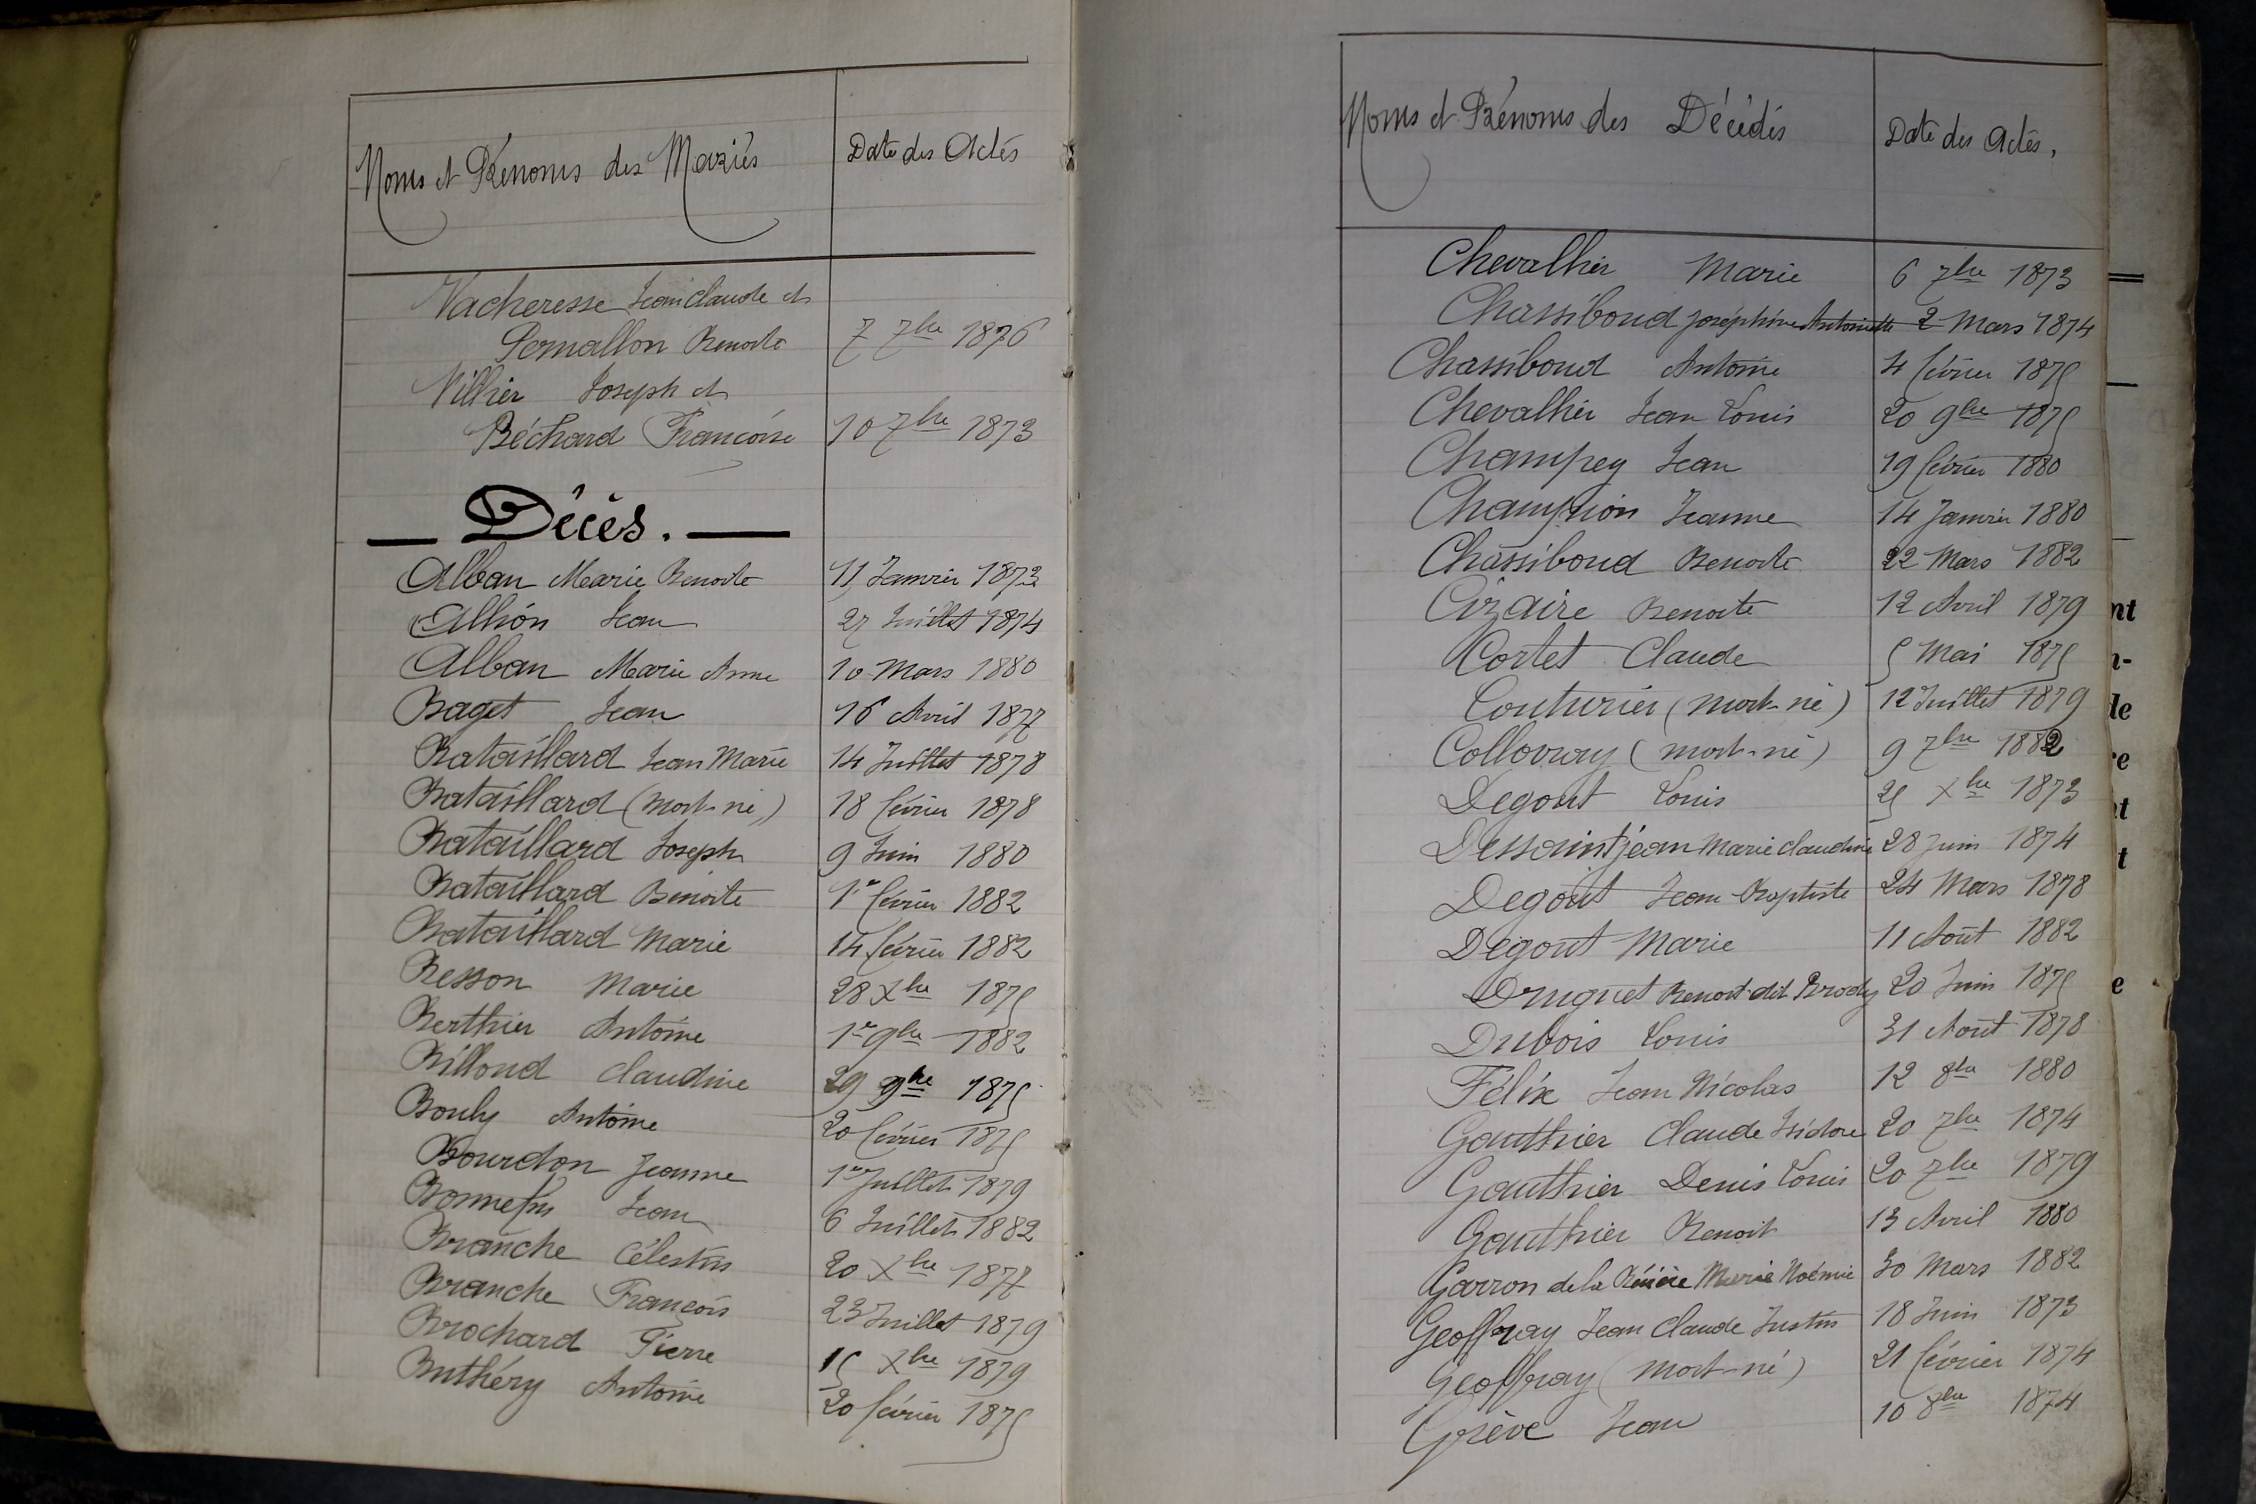 Noms et Prénoms des Mariés Date des Actes
Vacheresse Jean Claude et
Pernallon Benoite 7 7bre 1876
Villier Joseph et
Béchard Françoise 10 7bre 1873
Décès.
Alban Marie Benoite 11 Janvier 1873
Allión Jean 27 Juillet 1874
Alban Marie Anne 10 Mars 1880
Baget Jean 16 Avril 1877
Bataillard Jean Marie 14 Juillet 1878
Bataillard (mort-né) 18 février 1878
Bataillard Joseph 9 Juin 1880
Bataillard Bénoite 1er février 1882
Bataillard Marie 14 février 1882
Besson Marie 28 Xbre 1875
Berthier Antoine 1er 9bre 1882
Billoud Claudine 29 9bre 1875
Bouly Antoine 20 février 1875
Bourdon Jeanne 1er Juillet 1879
Bonnefus Jean 6 Juillet 1882
Branche Célestin 20 Xbre 1877
Branche François 23 Juillet 1879
Brochard Pierre 15 Xbre 1879
Buthéry Antoine 20 février 1875
Noms et Prénoms des Décédés Date des Actes.
Chevallier Marie 6 7bre 1873
Chassiboud Joséphine Antoinette 2 Mars 1874
Chassiboud Antoine 4 février 1875
Chevallier Jean Louis 20 9bre 1875
Champey Jean 19 février 1880
Champion Jeanne 14 Janvier 1880
Chassiboud Benoite 22 Mars 1882
Cizaire Benoite 12 Avril 1879
Cortet Claude 5 Mai 1875
Couturier (mort-né) 12 Juillet 1879
Collovray (mort-né) 9 7bre 1882
Degout Louis 25 Xbre 1873
Dessaintjean Marie Claudine 28 Juin 1874
Degout Jean-Baptiste 24 Mars 1878
Dégout Marie 11 Août 1882
Druguet Benoit dit Brody 20 Juin 1875
Dubois Louis 31 Août 1878
Félix Jean Nicolas 12 8bre 1880
Gauthier Claude Isidore 20 7bre 1874
Gauthier Denis Louis 20 7bre 1879
Gauthier Benoit 13 Avril 1880
Garron de la Bévière Marie Noémie 30 Mars 1882
Geoffray Jean Claude Justin 18 Juin 1873
Geoffray (mort-né) 21 février 1874
Grève Jean 10 8bre 1874
nt
n-
de
re
et
t
e